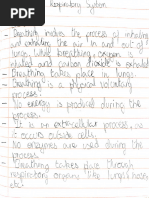 Respiratory System
- Breathing makes the process of inhaling
and exhaling the air in and out of
lungs. While breathing, oxygen is
inhaled and carbon dioxide is exhaled
- Breathing takes place in lungs.
- Breathing is a physical voluntary
process.
- No energy is produced during
breathing
- It is an extracellular process, as
it occurs outside cells.
- No enzymes are used during the
process.
- Breathing takes place through
respiratory organs like lungs, nose
etc